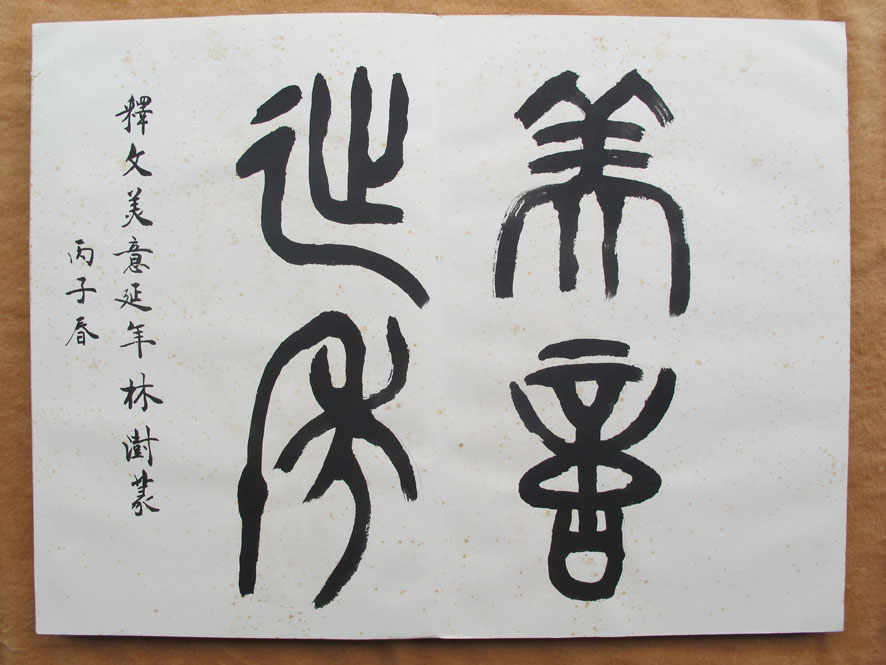 美意
延年
釋文美意延年林澍篆
丙子春